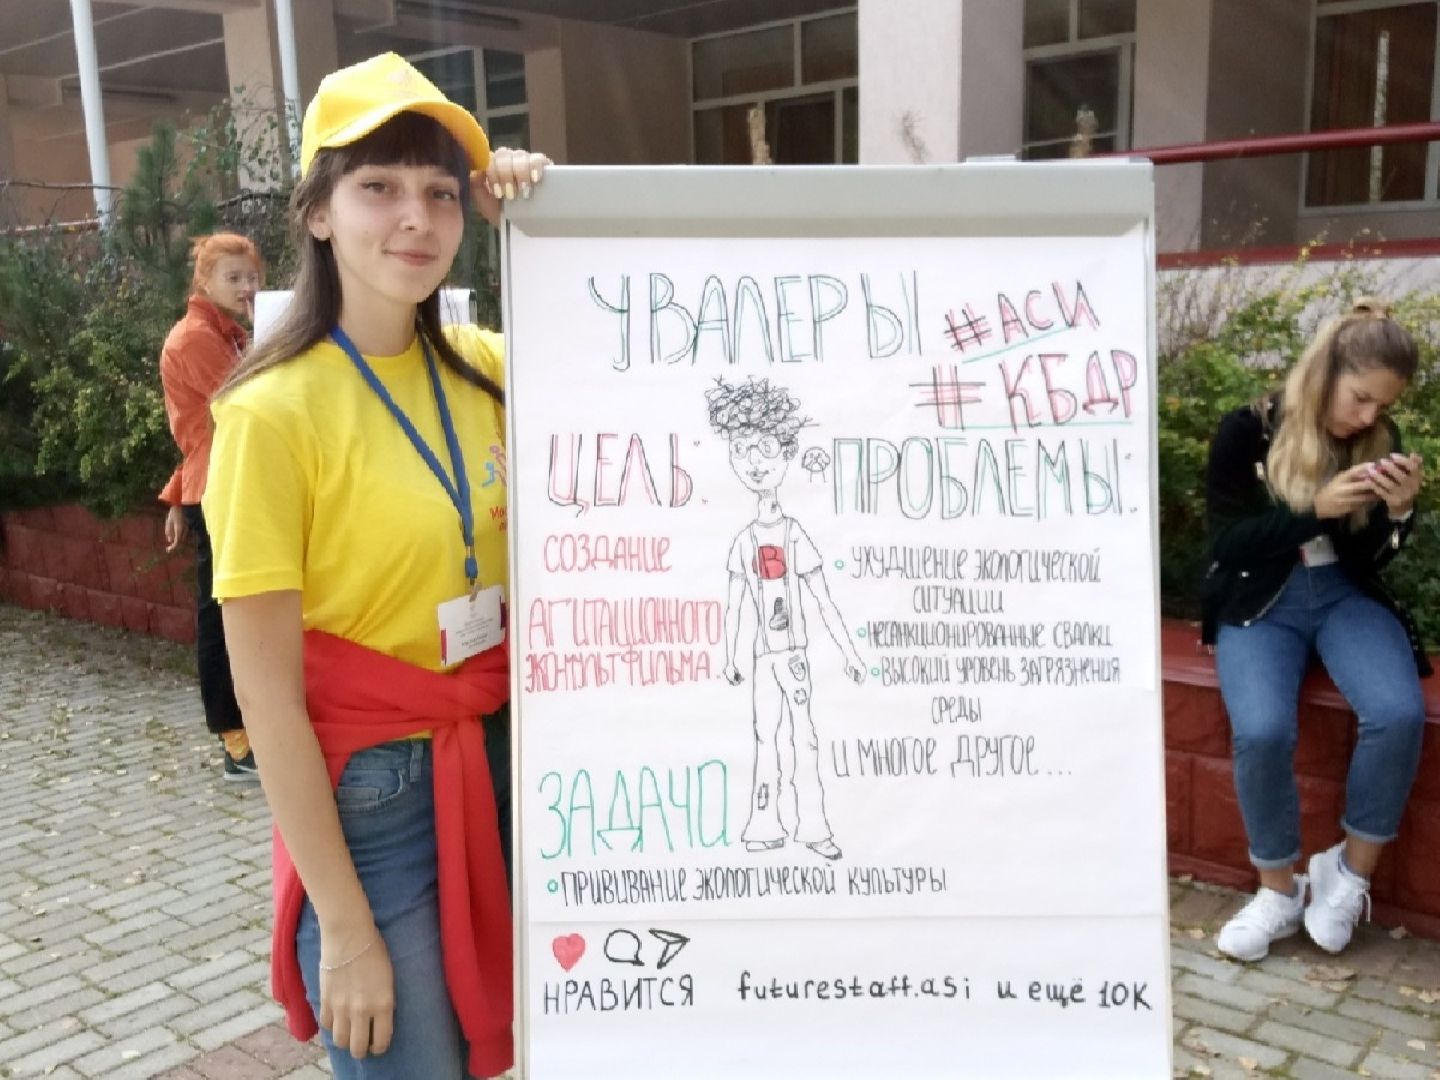 УВАЛЕРЫ
#АСИ
#КБДР
ЦЕЛЬ:
СОЗДАНИЕ
АГИТАЦИОННОГО
ЭКОМУЛЬТФИЛЬМА.
В
ПРОБЛЕМЫ:
УХУДШЕНИЕ ЭКОЛОГИЧЕСКОЙ
СИТУАЦИИ
НЕСАНКЦИОНИРОВАННЫЕ СВАЛКИ
ВЫСОКИЙ УРОВЕНЬ ЗАГРЯЗНЕНИЯ
СРЕДЫ
И МНОГОЕ ДРУГОЕ...
ЗАДАЧА
ПРИВИВАНИЕ ЭКОЛОГИЧЕСКОЙ КУЛЬТУРЫ
НРАВИТСЯ futurestaff.asi и ещё 10К